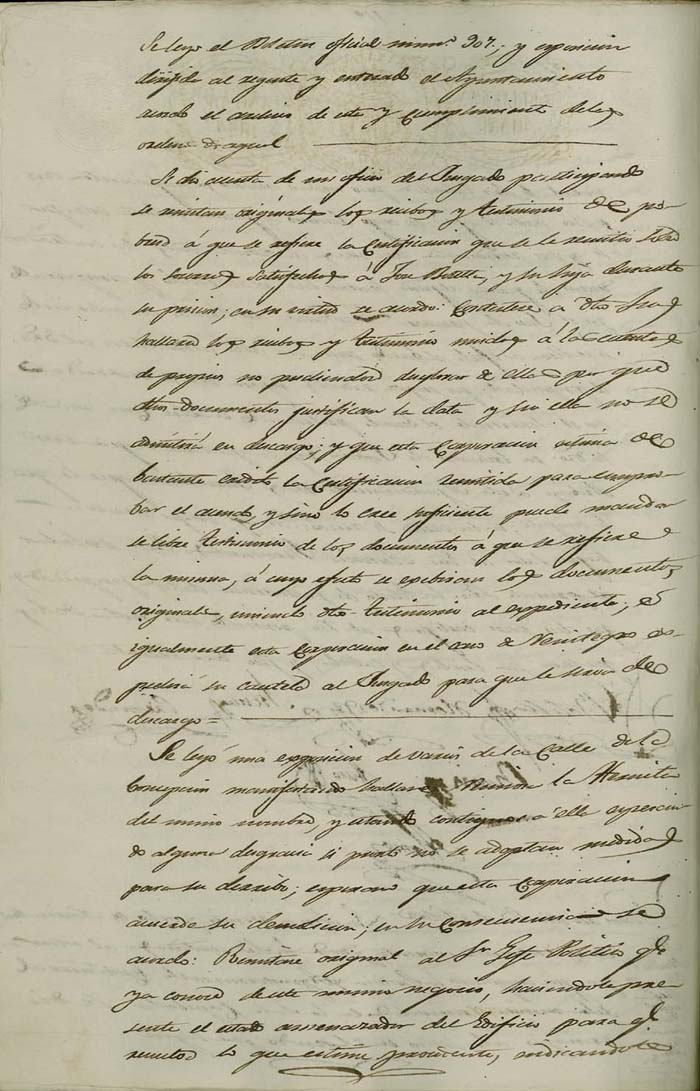 Se leyó el Boletin oficial num.º 907., y exposicion
dirijida al regente y enterado el Ayuntamiento
acordó el archivo de este y cumplimiento de las
ordenes de aquel
Se dio cuenta de un oficio del Juzgado participando
se remitan originales los recibos y testimonio de po-
breza á que se refiere la Certificacion que se le remitió sobre
los socorros satisfechos á José, y su hija durante
su prision; en su virtud se acordó: Contestar a dho Juzgado
hallarse los recibos y testimonio unidos á la cuenta
de propios no pudiendose desglosar de ella por que
dhos documentos justifican la data y sin ella no se
admitirá en descargo; y que esta Corporacion estima de
bastante credito la Certificacion remitida para compro-
bar el acuerdo, y sino lo cree suficiente puede mandar
se libre testimonio de los documentos á que se refiere
la misma, á cuyo efecto se exibiran los documentos
originales, uniendo dho testimonio al expediente; é
igualmente esta Corporacion en el caso de Reintegro ex-
pedirá su cautela al Juzgado para que le sirva de
descargo =
Se leyó una exposicion de varios de la Calle de la
Concepcion manifestando hallarse la Hermita
del mismo nombre, y estando contiguos a ella
alguna desgracia si pronto no se adoptan medidas
para su derribo; esperando que esta Corporacion
acuerde su demolicion; en su Consecuencia se
acordó: Remitirse original al Sr. Gefe Politico qe
ya conoce de este mismo negocio, haciendole pre-
sente el estado amenazador del Edificio para qe
resuelva lo que estime procedente, indicandole